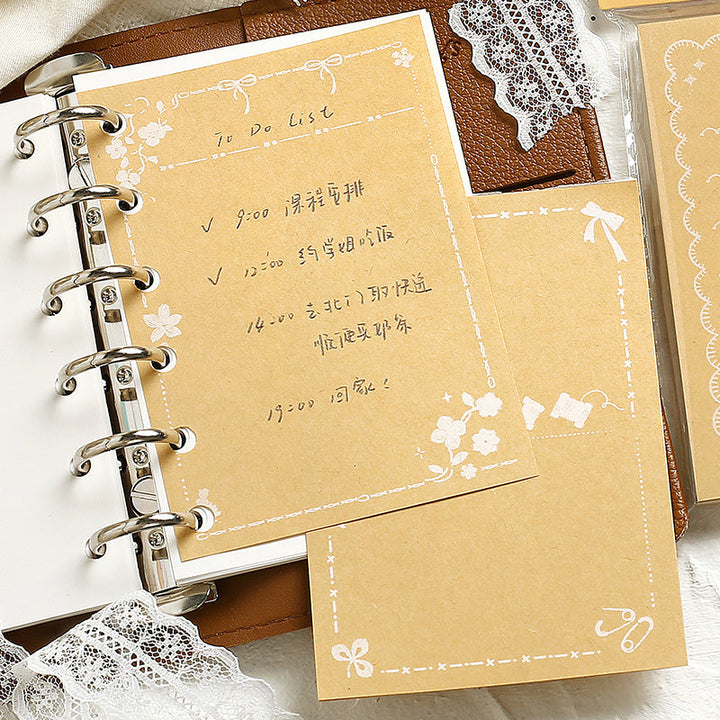 To Do List
✓ 9:00 课程彩排
✓ 12:00 约学姐吃饭
14:00 去北门取快递
顺便买奶茶
19:00 回家!